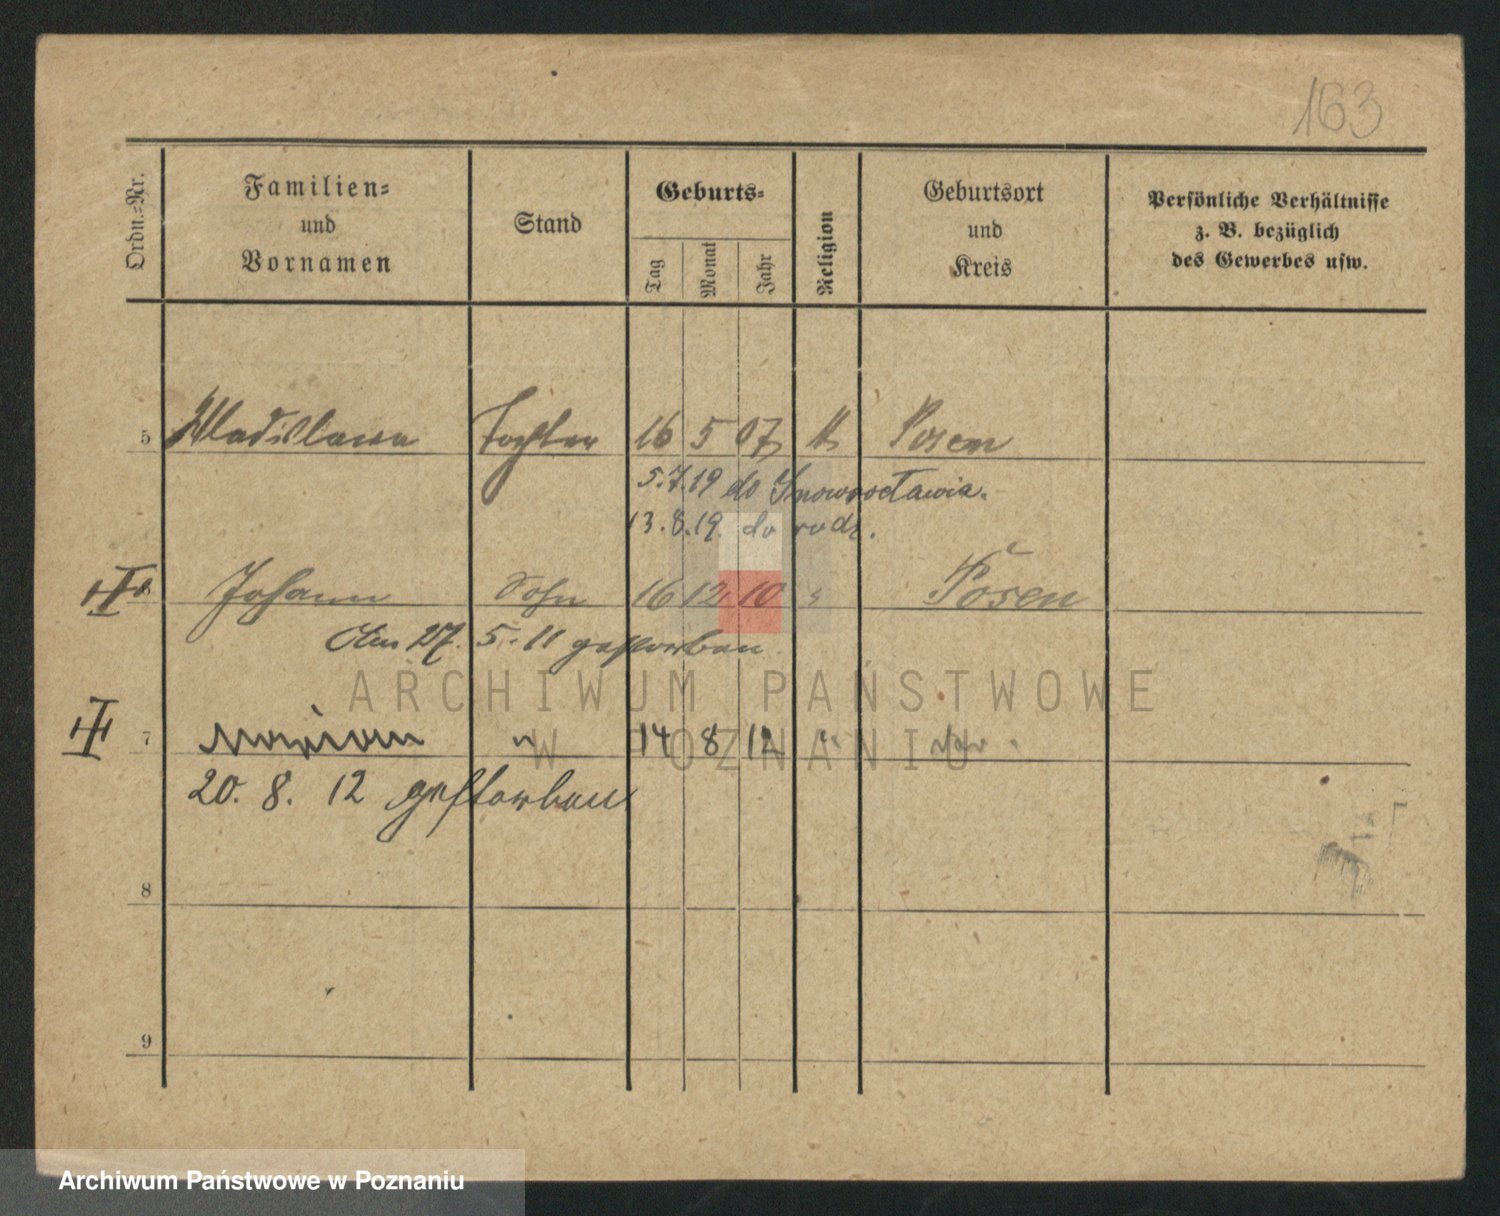 163
Ordn.-Nr. Familien- und Vornamen Stand Geburts- Tag Monat Jahr Religion Geburtsort und Kreis Persönliche Verhältnisse z. B. bezüglich des Gewerbes usw.
5 Wladislawa Tochter 16 5 07 Posen
5.7.19 do Inowrocławia.
13.8.19. do rodz.
Johann Sohn 16 12 10 " Posen
Am 27. 5. 11 gestorben
7 Marian " 14 8 12 "
20. 8. 12 gestorben
8
9
ARCHIWUM PAŃSTWOWE
W POZNANIU
Archiwum Państwowe w Poznaniu